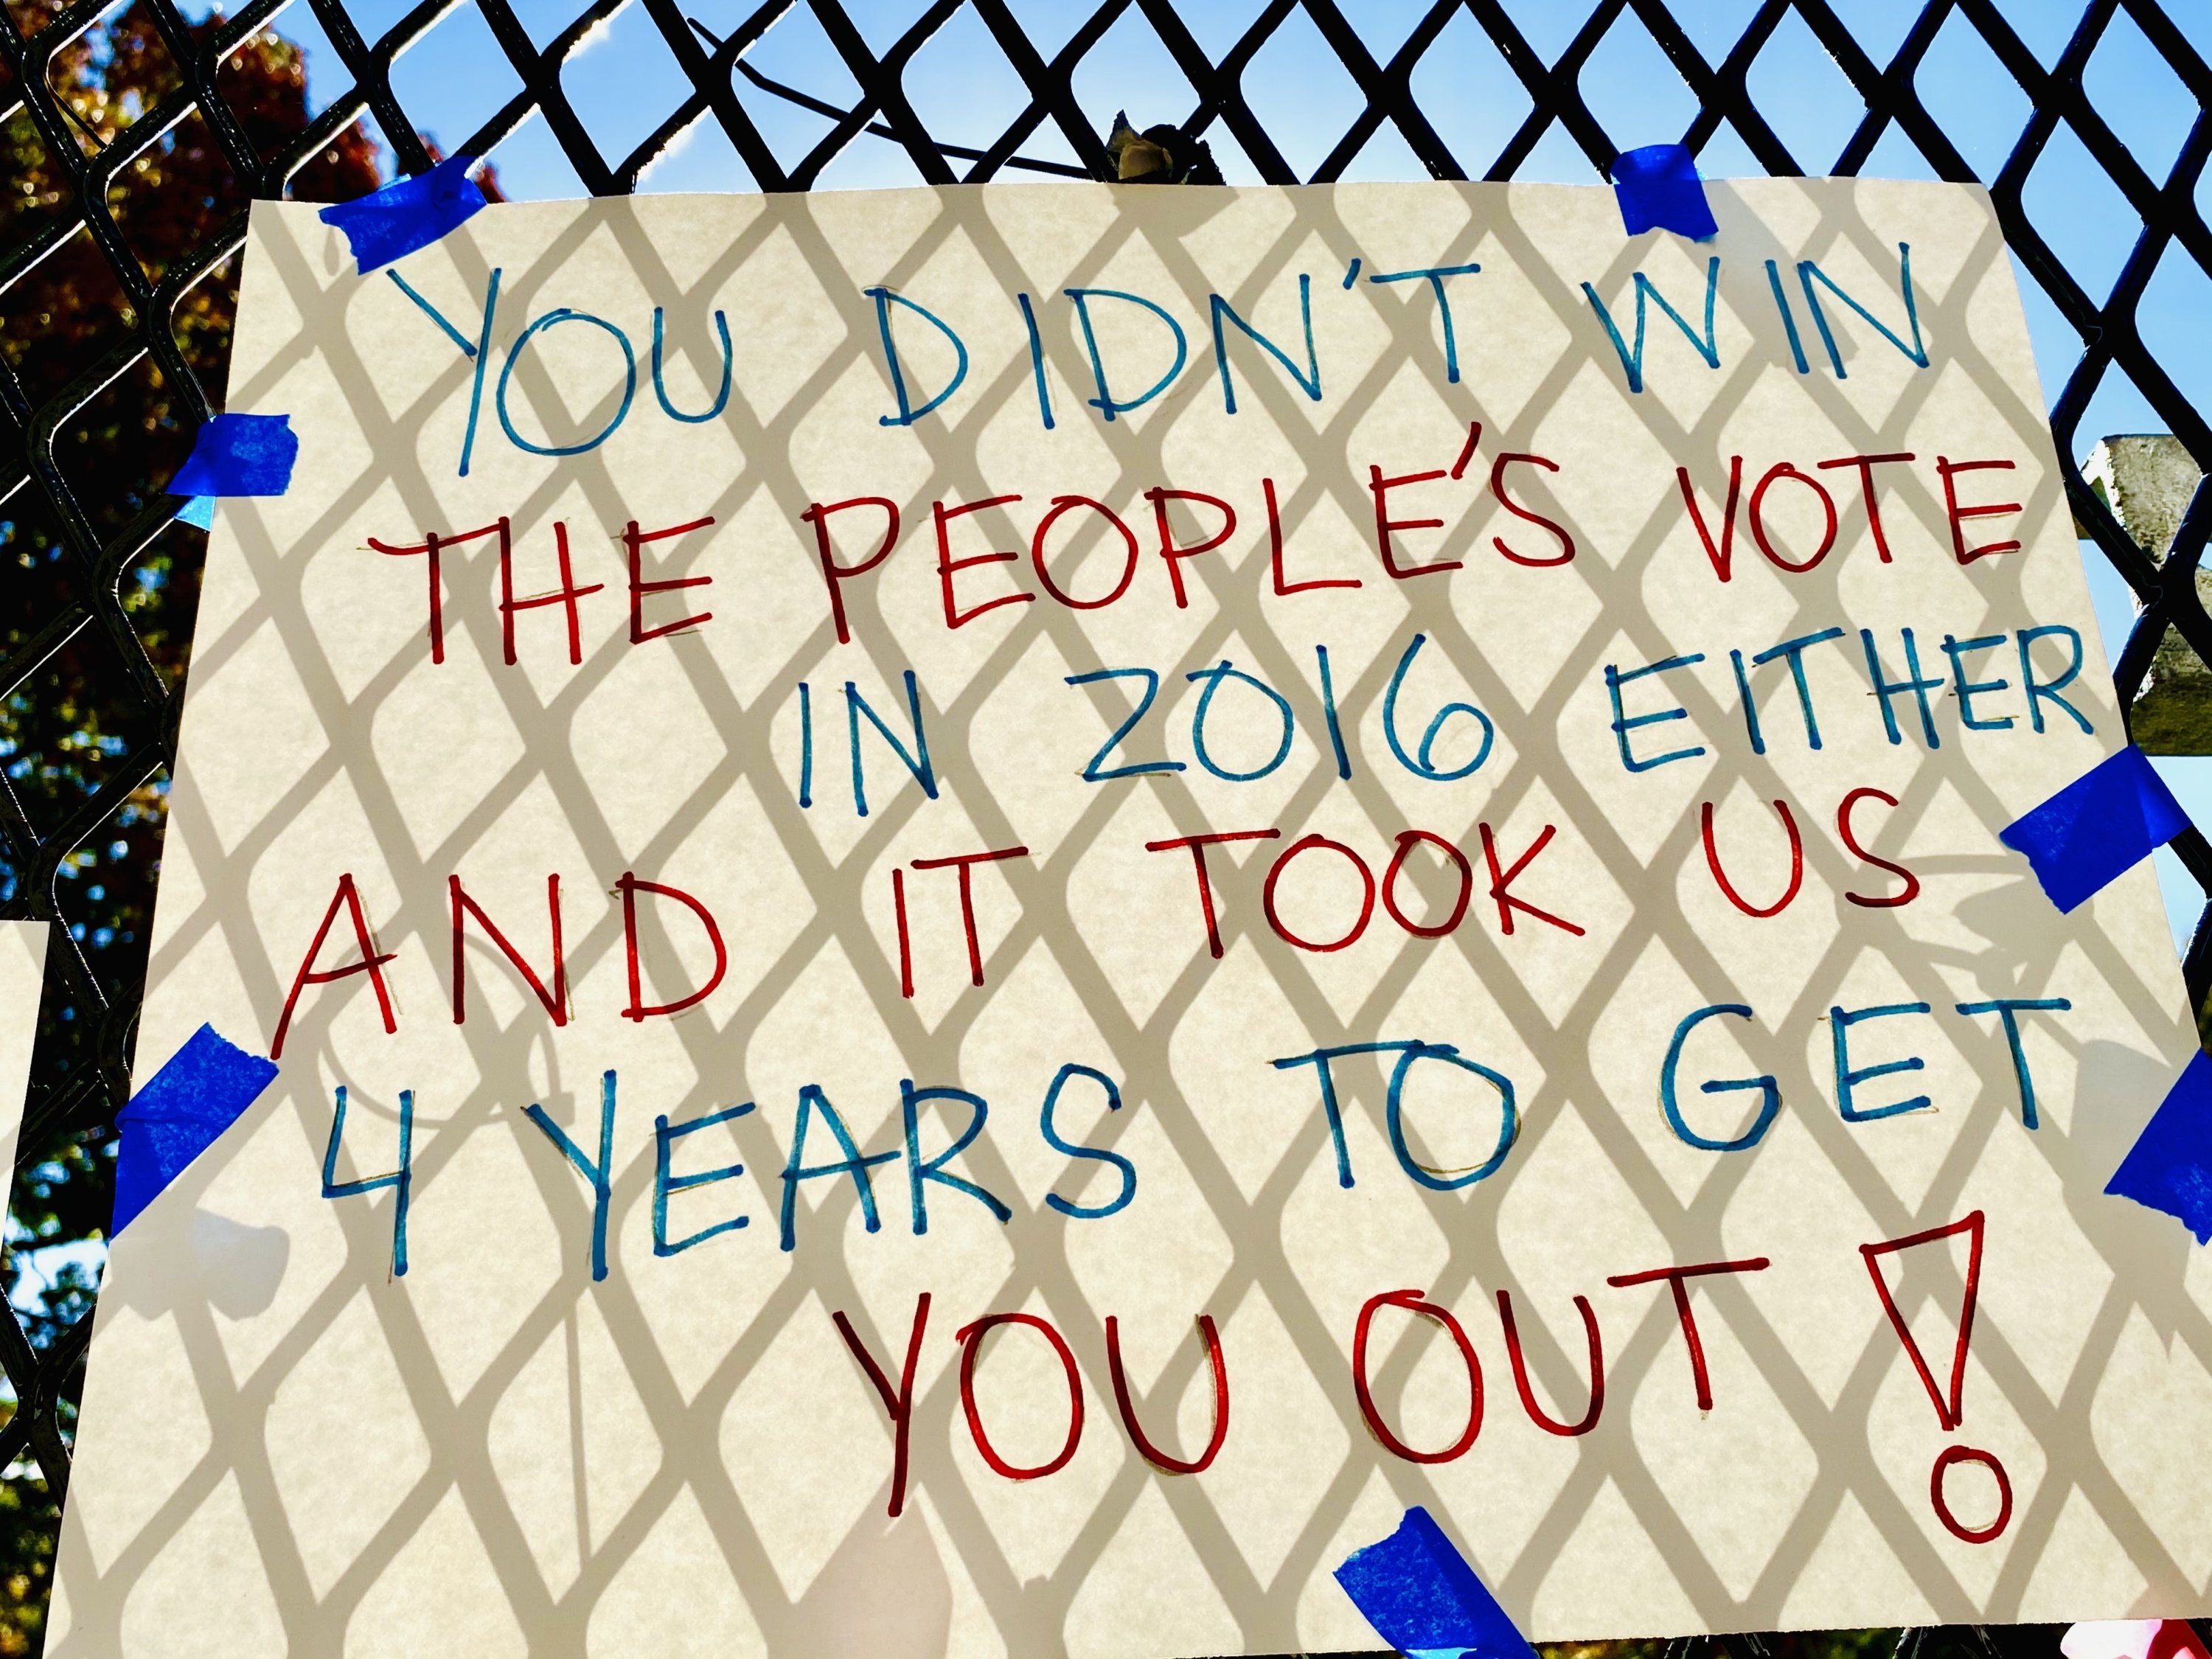 YOU DIDN'T WIN
THE PEOPLE'S VOTE
IN 2016 EITHER
AND IT TOOK US
4 YEARS TO GET
YOU OUT!